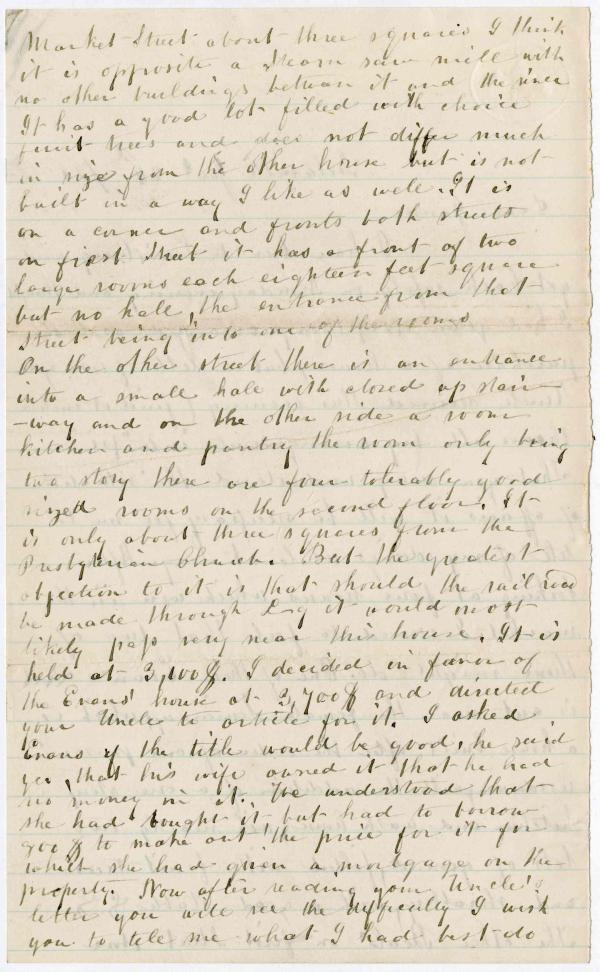 Market Street about three squares I think
it is opposite a steam saw mill with
no other buildings between it and the river
It has a good lot filled with choice
fruit trees and does not differ much
in size from the other house but is not
built in a way I like as well. It is
on a corner and fronts both streets
on first Street it has a front of two
large rooms each eighteen feet square
but no hall, the entrance from that
Street being into one of the rooms
On the other street there is an entrance
into a small hall with closed up stair-
-way and on the other side a room
kitchen and pantry the room only being
two story there are four tolerably good
sized rooms on the second floor. It
is only about three squares from the
Presbyterian Church. But the greatest
objection to it is that should the railroad
be made through L-g it would most
likely pass very near this house. It is
held at 3,100$. I decided in favor of
the Evans' house at 3,700$ and directed
your Uncle to article for it. I asked
Evans if the title would be good, he said
yes, that his wife owned it that he had
no money in it. We understood that
she had bought it, but had to borrow
900$ to make out the price for it for
which she had given a mortgage on the
property. Now after reading your Uncle's
letter you will see the difficulty I wish
you to tell me what I had best do